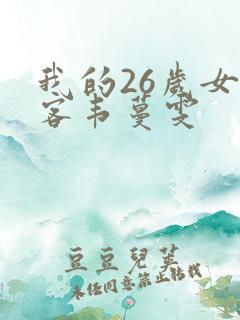 我的26歲女
客韦蔓雯
豆豆兒英
未经同意禁止转载